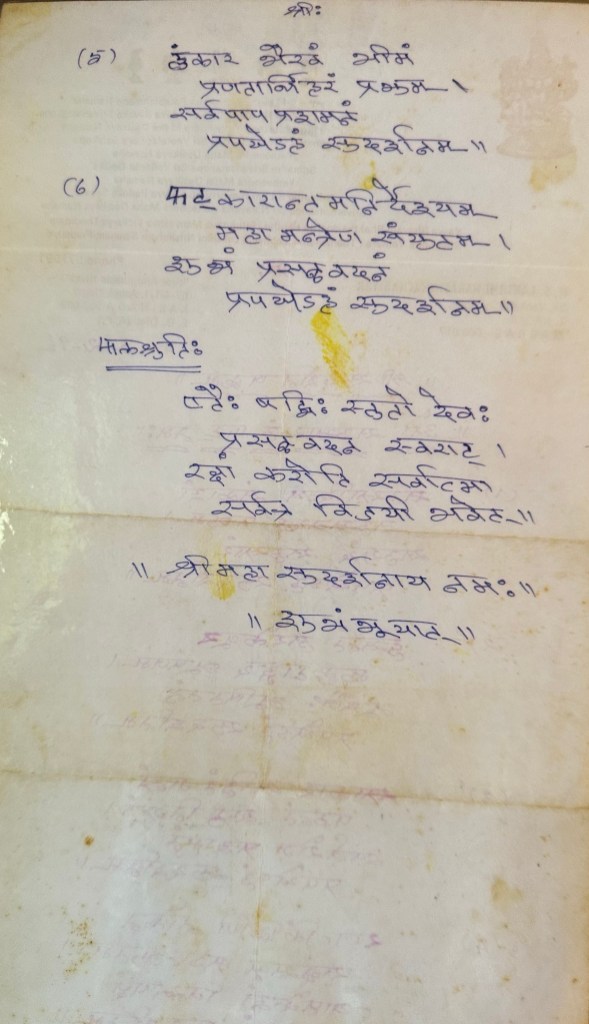 श्रीः
(5) हुंकार भैरवं भीमं
प्रणतार्तिहरं प्रभुम् ।
सर्वपाप प्रशमनं
प्रपद्येऽहं सुदर्शनम् ॥
(6) फट्कारान्तमनिर्देश्यम्
महा मन्त्रेण संयुतम् ।
शुभं प्रसन्नवदनं
प्रपद्येऽहं सुदर्शनम् ॥
फलश्रुतिः
एतैः षड्भिः स्तुतो देवः
प्रसन्नवदन स्वराट् ।
रक्षां करोति सर्वात्मा
सर्वत्र विजयी भवेत् ॥
॥ श्रीमहा सुदर्शनाय नमः ॥
॥ शुभंभूयात् ॥